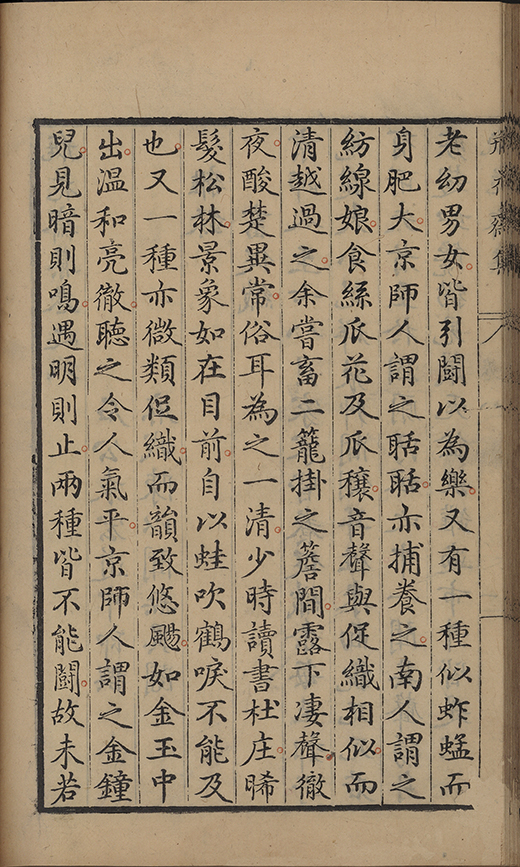 老幼男女皆引鬪以為樂又有一種似蚱蜢而
身肥大京師人謂之聒聒亦捕養之南人謂之
紡線娘食絲瓜花及瓜穰音聲與促織相似而
清越過之余嘗畜二籠掛之簷間露下凄聲徹
夜酸楚異常俗耳為之一清少時讀書杜庄晞
髮松林景象如在目前自以蛙吹鶴唳不能及
也又一種亦微類促織而韻致悠颺如金玉中
出溫和亮徹聽之令人氣平京師人謂之金鐘
兒見暗則鳴遇明則止兩種皆不能鬪故未若